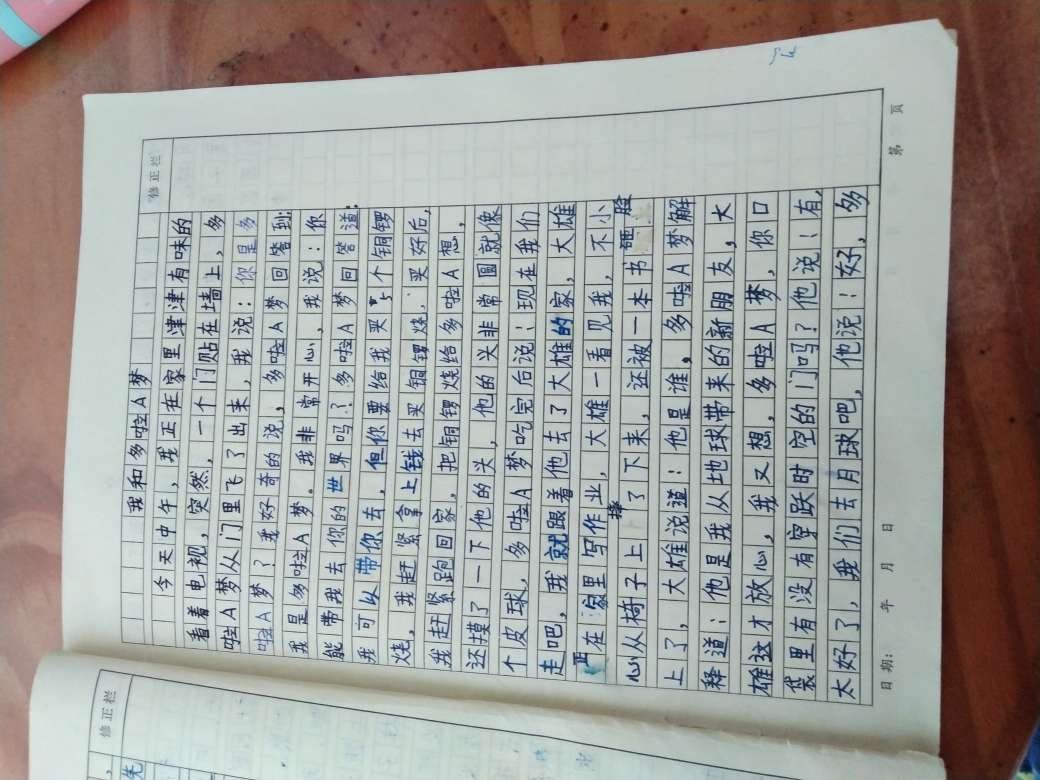 修正栏
我和多啦A梦
今天中午，我正在家里津津有味的
看着电视，突然，一个门贴在墙上，多
啦A梦从门里飞了出来，我说：你是多
啦A梦？我好奇的说，多啦A梦回答到：
我是多啦A梦。我非常开心，我说：你
能带我去你的世界吗？多啦A梦回答道：
我可以带你去，但你要给我买5个铜锣
烧，我赶紧拿上钱去买铜锣烧，买好后，
我赶紧跑回家，把铜锣烧给多啦A想，
还摸了一下他的头，他的头非常圆就像
个皮球，多啦A梦吃完后说：现在我们
走吧，我就跟着他去了大雄的家，大雄
正在家里写作业，大雄一看见我，不小
心从椅子上摔了下来，还被一本书砸脸
上了，大雄说道：他是谁，多啦A梦解
释道：他是我从地球带来的新朋友，大
雄这才放心，我又想，多啦A梦，你口
袋里有没有穿跃时空的门吗？他说：有，
太好了，我们去月球吧，他说：好，多
日期： 年 月 日
第 页
修正栏